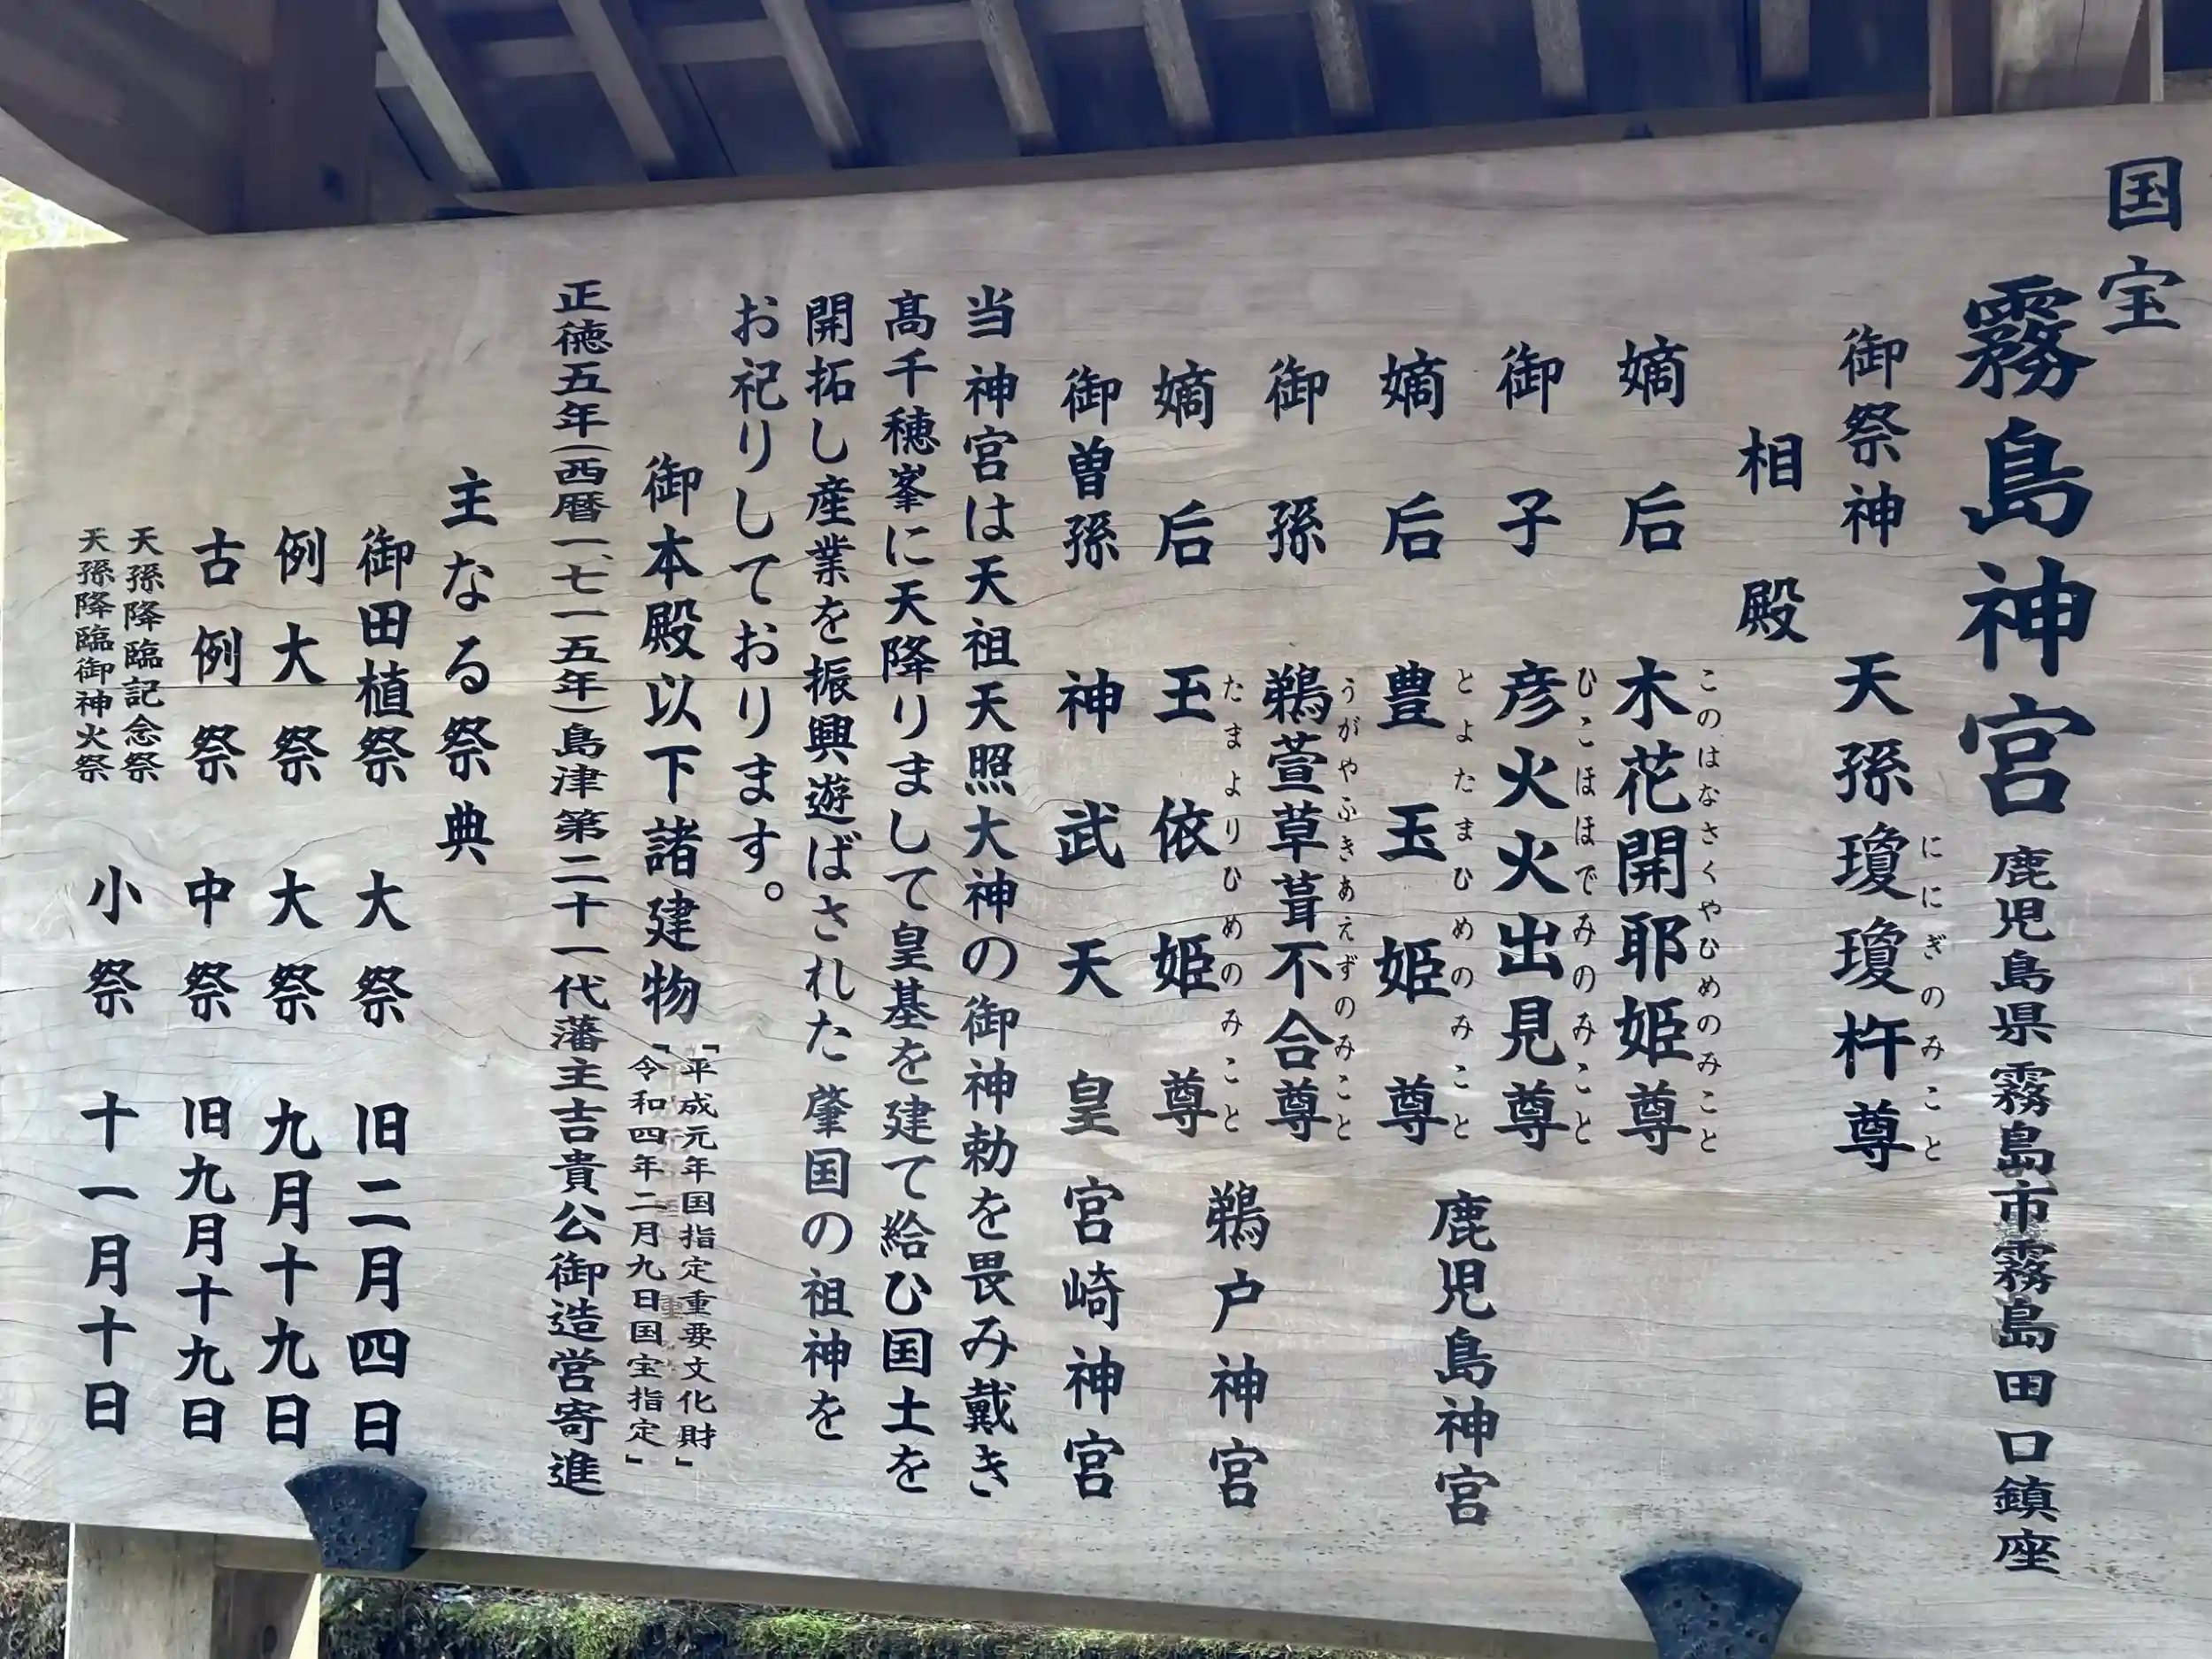 国宝
霧島神宮 鹿児島県霧島市霧島田口鎮座
御祭神 天孫瓊瓊杵尊
ににぎのみこと
相殿
嫡后 木花開耶姫尊
このはなさくやひめのみこと
御子 彦火火出見尊
ひこほほでみのみこと
鹿児島神宮
嫡后 豊玉姫尊
とよたまひめのみこと
御孫 鵜萱草葺不合尊
うがやふきあえずのみこと
鵜戸神宮
嫡后 玉依姫尊
たまよりひめのみこと
御曽孫 神武天皇 宮崎神宮
当神宮は天祖天照大神の御神勅を畏み戴き
高千穂峯に天降りまして皇基を建て給ひ国土を
開拓し産業を振興遊ばされた肇国の祖神を
お祀りしております。
御本殿以下諸建物
「平成元年国指定重要文化財」
「令和四年二月九日国宝指定」
正徳五年(西暦一、七一五年)島津第二十一代藩主吉貴公御造営寄進
主なる祭典
御田植祭 大祭 旧二月四日
例大祭 大祭 九月十九日
古例祭 中祭 旧九月十九日
天孫降臨記念祭
天孫降臨御神火祭
小祭 十一月十日